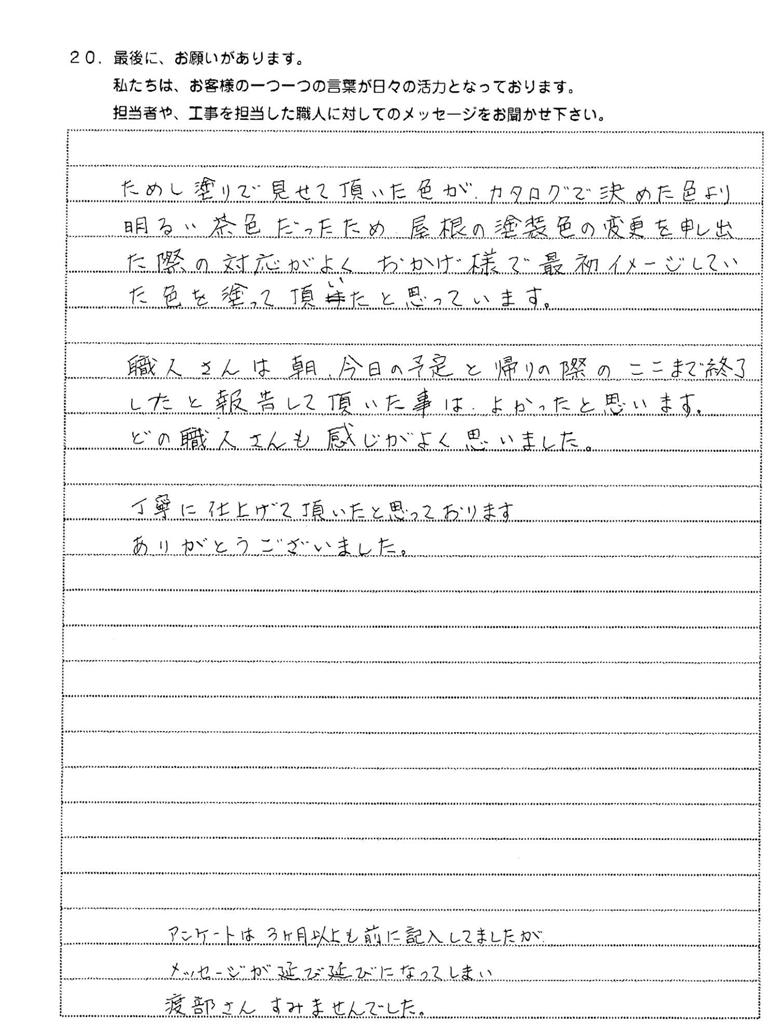 20．最後に、お願いがあります。
私たちは、お客様の一つ一つの言葉が日々の活力となっております。
担当者や、工事を担当した職人に対してのメッセージをお聞かせ下さい。
ためし塗りで見せて頂いた色が、カタログで決めた色より
明るい茶色だったため、屋根の塗装色の変更を申し出
た際の対応がよく おかげ様で最初イメージしてい
た色を塗って頂いたと思っています。
職人さんは朝、今日の予定と帰りの際のここまで終了
したと報告して頂いた事は、よかったと思います。
どの職人さんも感じがよく思いました。
丁寧に仕上げて頂いたと思っております
ありがとうございました。
アンケートは3ヶ月以上も前に記入してましたが
メッセージが延び延びになってしまい
渡部さんすみませんでした。